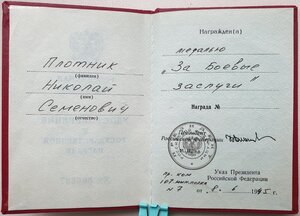 Плотник
(фамилия)
Николай
(имя)
Семенович
(отчество)
Награжден(а)
медалью
„За Боевые
заслуги"
Награда №
Президент
Российской Федерации
Указ Президента
Российской Федерации
№ 7 8 6 1995 г.